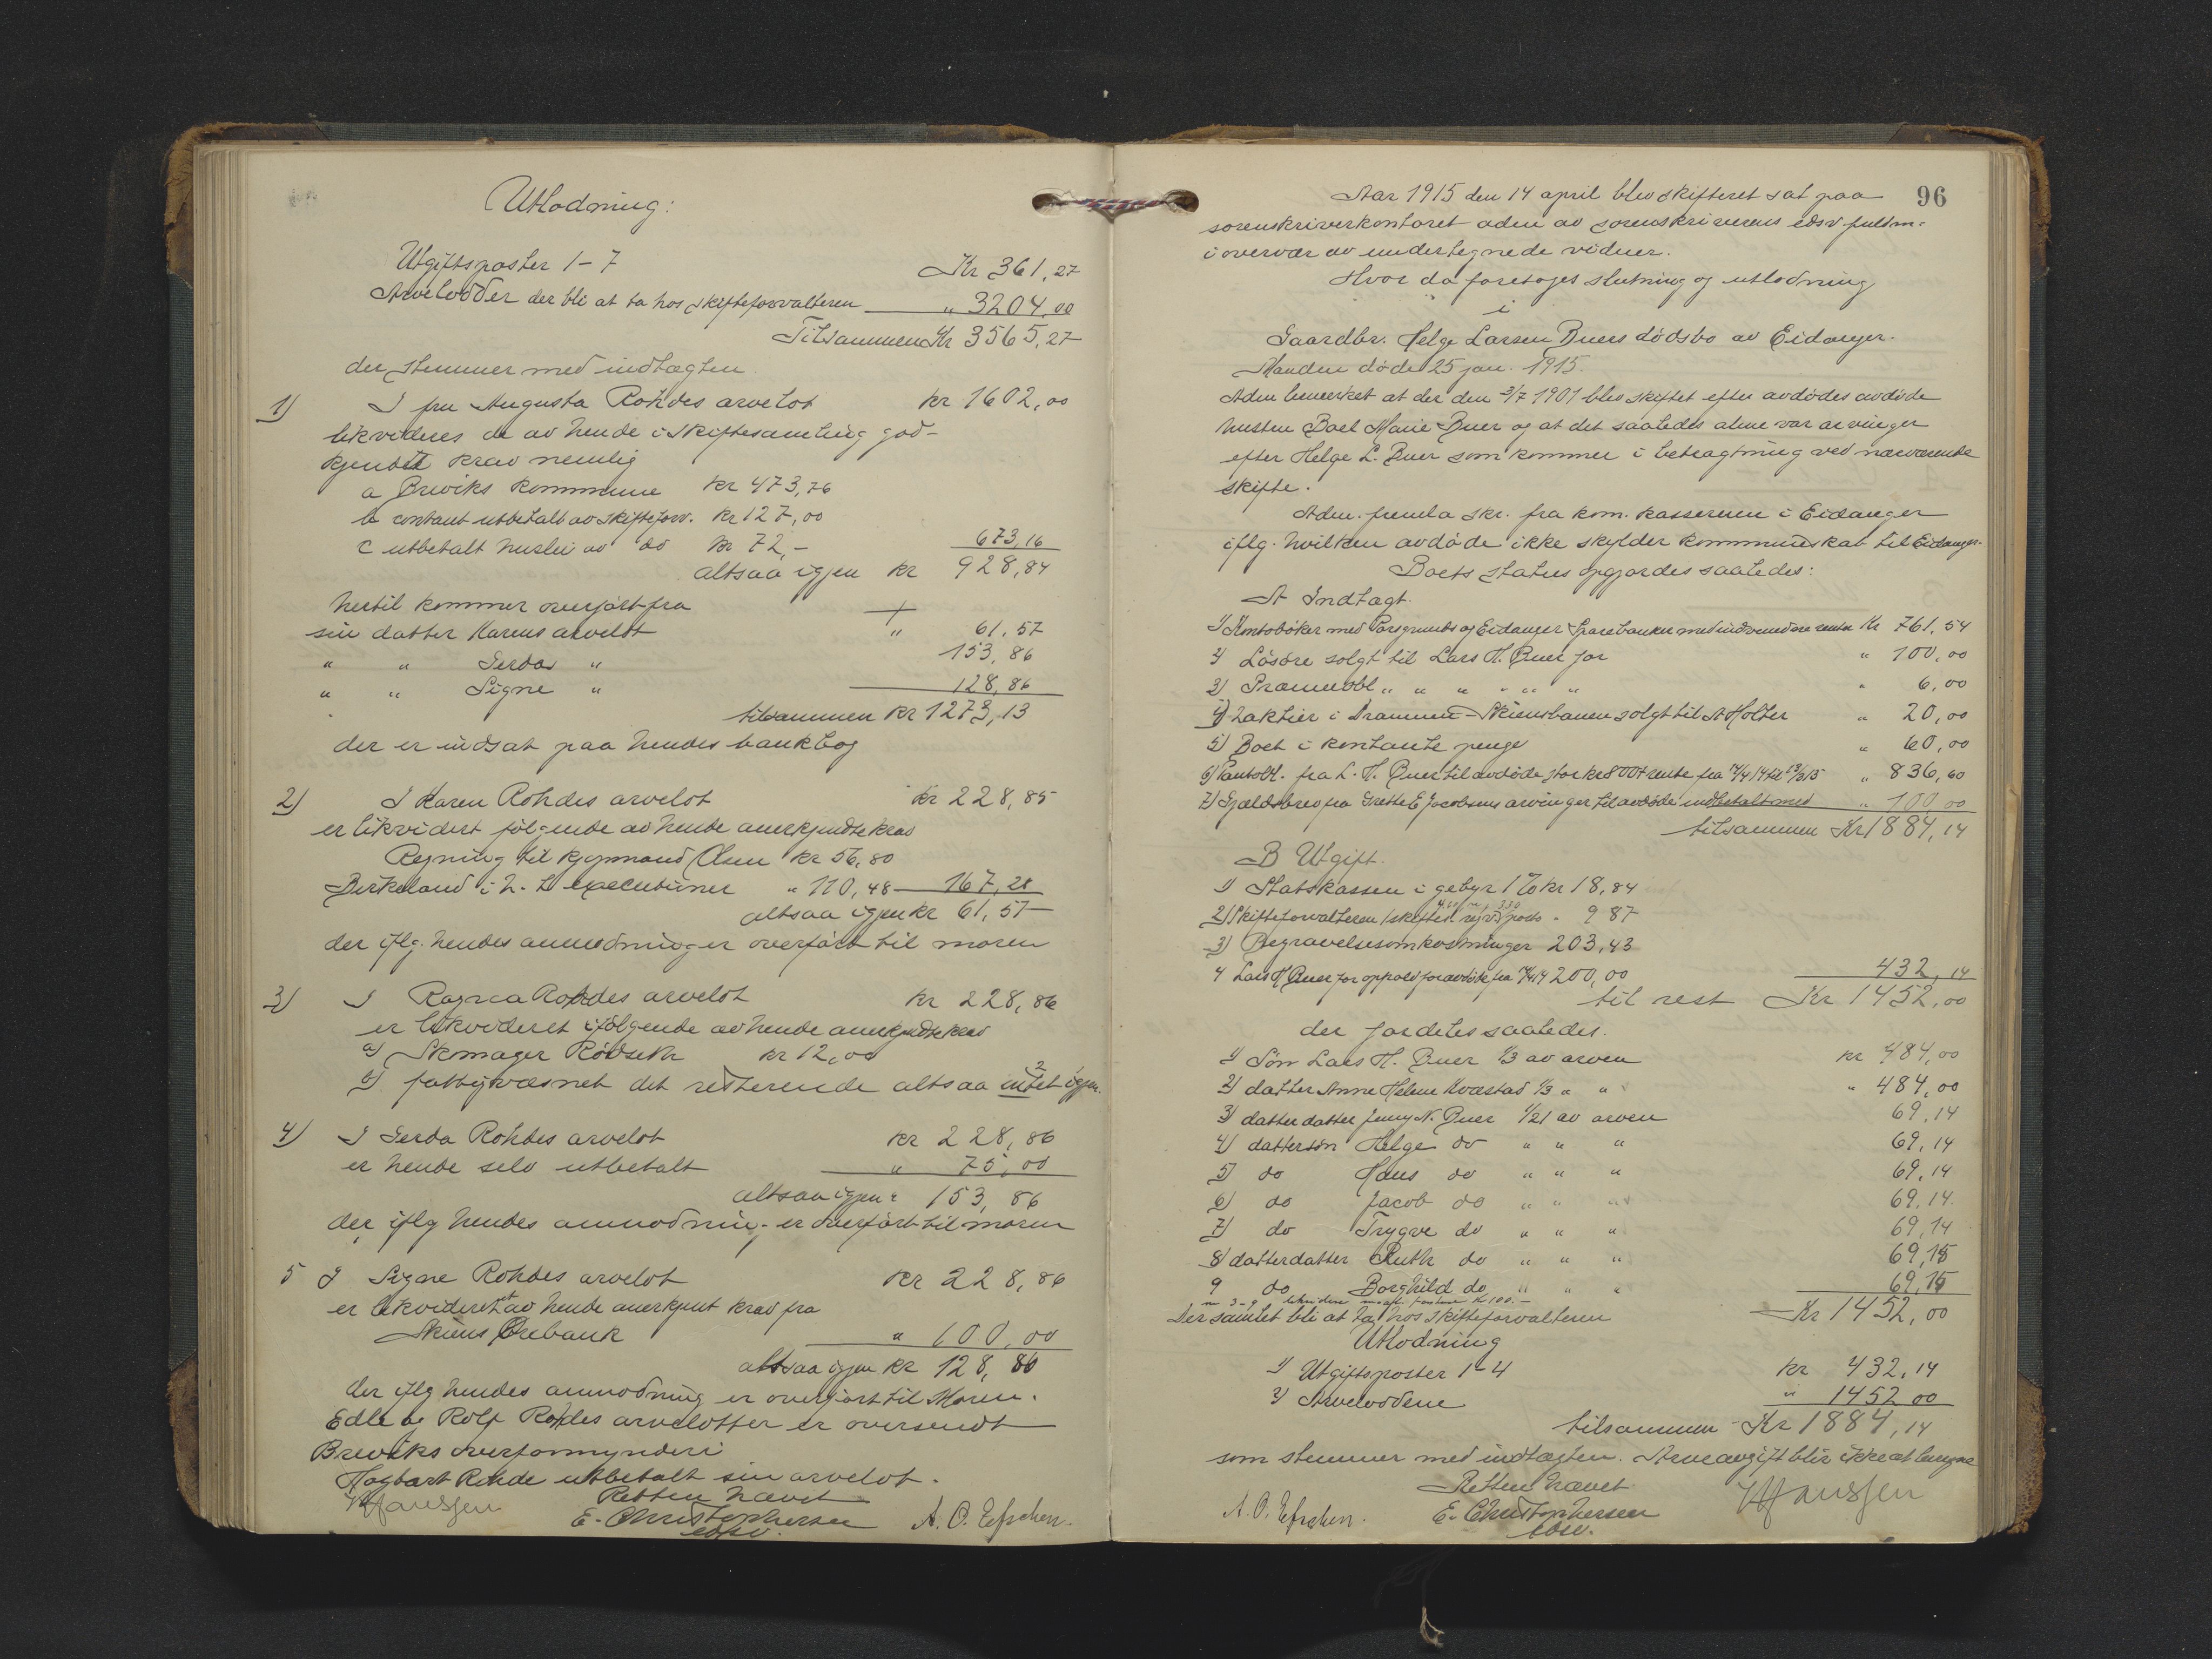 Utlodning:
Utgiftsposter 1-7 Kr 361,27
Arvelodder der bli at ta hos skifteforvalteren " 3204,00
Tilsammen Kr 3565,27
der stemmer med indtægten.
1) I fru Augusta Rohdes arvelot kr 1602,00
likvideres de av hende i skiftesamling god-
kjendte krav nemlig
a Breviks kommune kr 473,76
b contant utbetalt av skifteforv. kr 127,00
c utbetalt husleie av do kr 72,- 673,16
altsaa igjen kr 928,84
hertil kommer overført fra +
sin datter Karens arvelot " 61,57
" " Gerdas " 153,86
" " Signe " 128,86
tilsammen kr 1273,13
der er indsat paa hendes bankbog
2) I Karen Rohdes arvelot kr 228,85
er likvidert følgende av hende anerkjendte krav
Regning til kjøpmand Olsen kr 56,80
Birkeland i h. t. executioner " 110,48 167,28
altsaa igjen kr 61,57
der iflg. hendes anmodning er overført til moren
3) I Ragna Rohdes arvelot kr 228,86
er likvideret følgende av hende anerkjendte krav
a) Skomager Rødseth kr 12,00
b) fattigvæsnet det resterende altsaa intet igjen.
4) I Gerda Rohdes arvelot kr 228,86
er hende selv utbetalt " 75,00
altsaa igjen " 153,86
der iflg hendes anmodning er overført til moren
5 I Signe Rohdes arvelot kr 228,86
er likvideret et av hende anerkjent krav fra
Skiens Ørebank " 100,00
altsaa igjen kr 128,86
der iflg hendes anmodning er overført til Moren.
Edle og Rolf Rohdes arvelotter er oversendt
Breviks overformynderi
Hagbart Rohde utbetalt sin arvelot.
Retten hævet
Hanssen E. Christophersen A. O. Efschen.
edsv.
96
Aar 1915 den 14 april blev skifteret sat paa
sorenskriverkontoret aden av sorenskriverens edsv. fuldm.
i overvær av undertegnede vidner.
Hvor da foretoges slutning og utlodning
i
Gaardbr. Helge Larsen Buers dødsbo av Eidanger.
Manden døde 25 jan. 1915.
Adm bemerket at der den 3/7 1901 blev skiftet efter avdødes avdøde
hustru Boel Marie Buer og at det saaledes alene var arvinger
efter Helge L. Buer som kommer i betragtning ved nærværende
skifte.
Adm. freml a skr. fra kom. kassereren i Eidanger
iflg. hvilken avdøde ikke skylder kommuneskat til Eidanger.
Boets status opgjordes saaledes:
A Indtægt.
1) Kontobøker med Porsgrunds og Eidanger Sparebanker med indvundne renter Kr 761,54
2) Løsøre solgt til Lars H. Buer for " 100,00
3) Prammobl " " " " " " " 6,00
4) 2 aktier i Drammen-Skiensbanen solgt til A Holter " 20,00
5) Boet i kontante penge " 60,00
6) Pantobl. fra L. H. Buer til avdøde stor kr 800 + rente fra 14/4 14 til 13/3 15 " 836,60
7) Gjældsbrev fra Grethe E Jacobsens arvinger til avdøde indbetalt med " 100,00
tilsammen Kr 1884,14
B Utgift.
1) Statskassen i gebyr 1% kr 18,84
2) Skifteforvalteren / skifted. rejse posto " 9 87
3) Begravelsesomkostninger 203,43
4 Lars H. Buer for ophold for avdøde fra 14/4 14 200,00 432,14
til rest Kr 1452,00
der fordeles saaledes.
1) Søn Lars H. Buer 1/3 av arven kr 484,00
2) datter Anne Helene Kvæstad 1/3 " " " 484,00
3) datterdatter Jenny N. Buer 1/21 av arven 69,14
4) dattersøn Helge do " " " 69,14
5) do Hans do " " " 69,14
6) do Jacob do " " " 69,14
7) do Trygve do " " " 69,14
8) datterdatter Ruth do " " " 69,15
9 do Borghild do " " " 69,15
Der samlet bli at ta hos skifteforvalteren Kr 1452,00
Utlodning
1) Utgiftsposter 1-4 kr 432,14
2) Arvelodderne " 1452 00
tilsammen Kr 1884,14
som stemmer med indtægten. Arveavgift blir ikke at beregne
Retten hævet.
A. O. Efschen. E. Christophersen Hanssen
edsv.